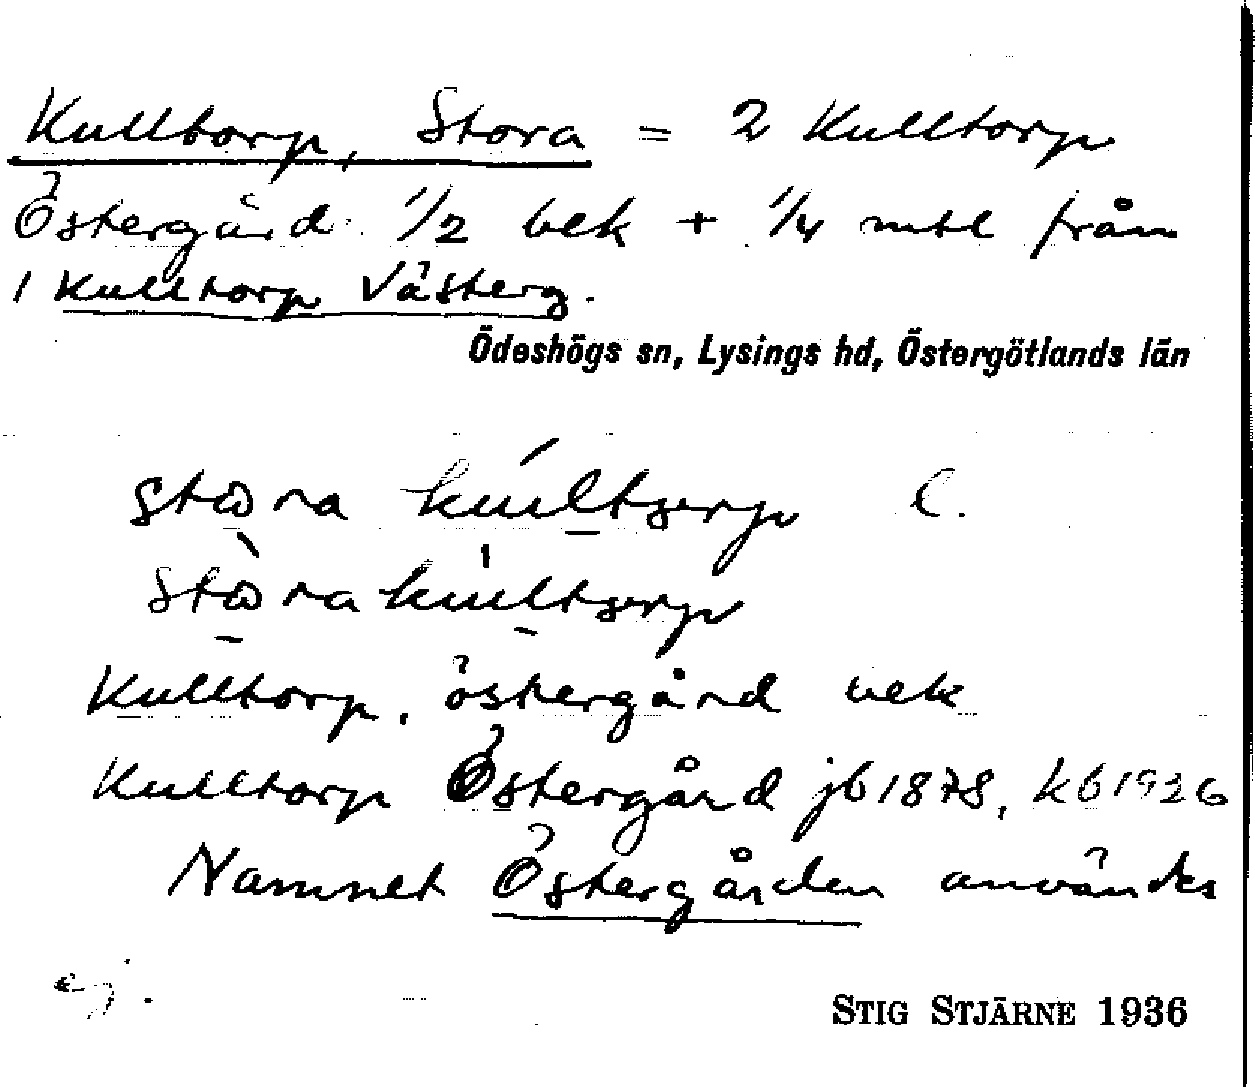 Kulltorp, Stora = 2 Kulltorp
Östergård 1/2 bek + 1/4 mtl från
1 Kulltorp Västerg.
Ödeshögs sn, Lysings hd, Östergötlands län
Kulltorp, östergård bek
Kulltorp Östergård jb 1878, kb 1926
Namnet Östergården användes
ej.
STIG STJÄRNE 1936